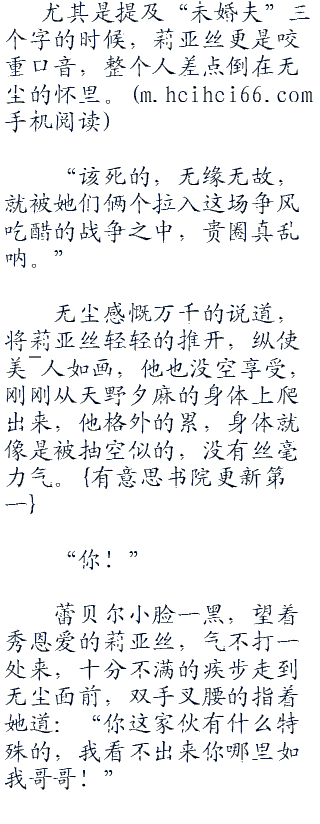 尤其是提及“未婚夫”三
个字的时候，莉亚丝更是咬
重口音，整个人差点倒在无
尘的怀里。(m.hcihci66.com
手机阅读)
“该死的，无缘无故，
就被她们俩个拉入这场争风
吃醋的战争之中，贵圈真乱
呐。”
无尘感慨万千的说道，
将莉亚丝轻轻的推开，纵使
美¯人如画，他也没空享受，
刚刚从天野夕麻的身体上爬
出来，他格外的累，身体就
像是被抽空似的，没有丝毫
力气。{有意思书院更新第
一}
“你！”
蕾贝尔小脸一黑，望着
秀恩爱的莉亚丝，气不打一
处来，十分不满的疾步走到
无尘面前，双手叉腰的指着
她道：“你这家伙有什么特
殊的，我看不出来你哪里如
我哥哥！”